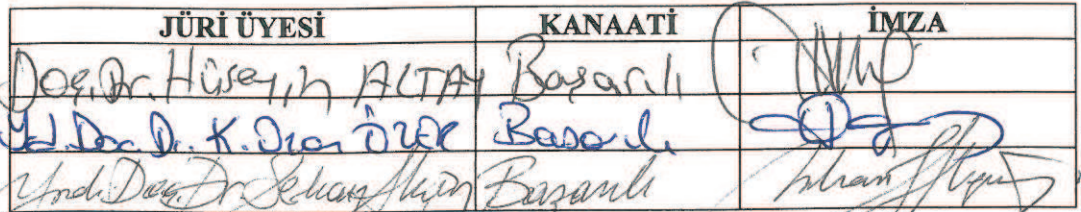 JÜRİ ÜYESİ KANAATİ İMZA
Doç. Dr. Hüseyin ALTAY Başarılı
Yd. Doç. Dr. K. Ozan ÖZER Başarılı
Yrd. Doç. Dr. Başarılı